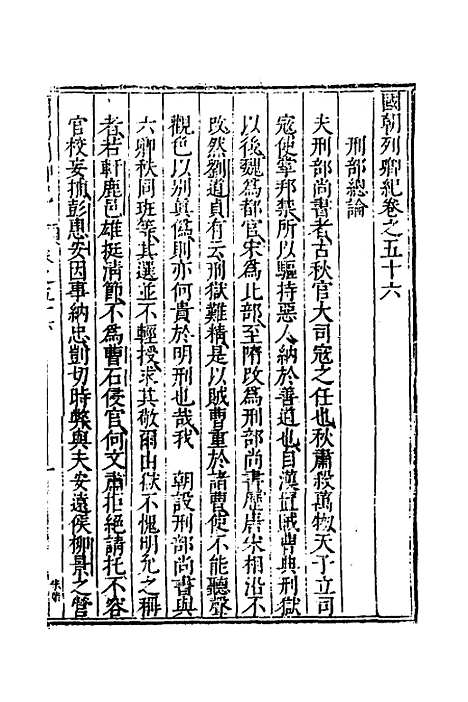 國朝列卿紀卷之五十六
刑部總論
夫刑部尚書者古秋官大司寇之任也秋肅殺萬物天子立司
寇使掌邦禁所以驅持惡人納於善道也自漢置賊曹典刑獄
以後魏為都官宋為比部至隋改為刑部尚書歷唐宋相沿不
改然劉道貞有云刑獄難精是以賊曹重於諸曹使不能聽聲
觀色以別眞偽則亦何貴於明刑也哉我 朝設刑部尚書與
六卿秩同班等其選並不輕授求其敬爾由獄不愧明允之稱
者若軒鹿邑雄挺淸節不為曹石侵官何文肅拒絕請托不容
官校妄揷彭惠安因事納忠剴切時弊與夫安遠侯柳景之瞥